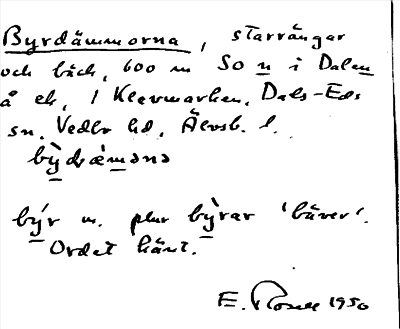 Byrdämmorna, starrängar
och bäck, 600 m So n i Dalen
å ek, i Klevmarken, Dals-Eds
sn, Vedbo hd, Älvsb. l.
by̆dræ̀mənə
by̆r m. plur by̆rar 'bäver'.
Ordet känt.
E. 1950